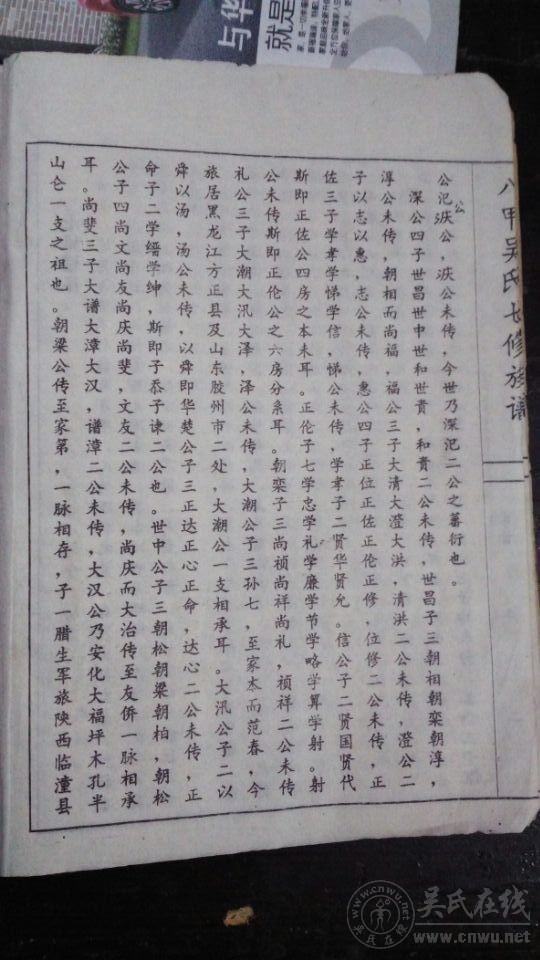 与华
就是
八甲吴氏七修族谱
公
公汜洃公，洃公未传，今世乃深汜二公之蕃衍也。
深公四子世昌世中世和世贵，和贵二公未传，世昌子三朝相朝栾朝淳，
淳公未传，朝相而尚福，福公三子大清大澄大洪，清洪二公未传，澄公二
子以志以惠，志公未传，惠公四子正位正佐正伦正修，位修二公未传，正
佐三子学孝学悌学信，悌公未传，学孝子二贤华贤允。信公子二贤国贤代
斯即正佐公四房之本末耳。正伦子七学忠学礼学廉学节学略学算学射。射
公未传斯即正伦公之六房分系耳。朝栾子三尚祯尚祥尚礼，祯祥二公未传
礼公三子大潮大汛大泽，泽公未传，大潮公子三孙七，至家本而范春，今
旅居黑龙江方正县及山东胶州市二处，大潮公一支相承耳。大汛公子二以
舜以汤，汤公未传，以舜即华楚公子三正达正心正命，达心二公未传，正
命子二学缙学绅，斯即子忝子谏二公也。世中公子三朝松朝梁朝柏，朝松
公子四尚文尚友尚庆尚斐，文友二公未传，尚庆而大治传至友侨一脉相承
耳。尚斐三子大谱大漳大汉，谱漳二公未传，大汉公乃安化大福坪木孔半
山仑一支之祖也。朝梁公传至家第，一脉相存，子一腊生军旅陕西临潼县
吴氏在线
www.cnwu.net